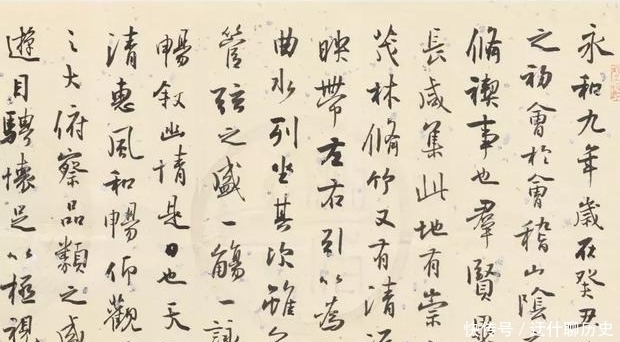 永和九年歲在癸丑
之初會於會稽山陰
脩禊事也羣賢畢
長咸集此地有崇
茂林脩竹又有清流
映帶左右引以為
曲水列坐其次雖無
管弦之盛一觴一詠
暢敘幽情是日也天
清惠風和暢仰觀
之大俯察品類之盛
遊目騁懷足以極視
快传号/迁什聊历史